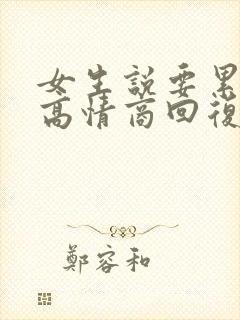 女生説要累
高情商回復
鄭容和